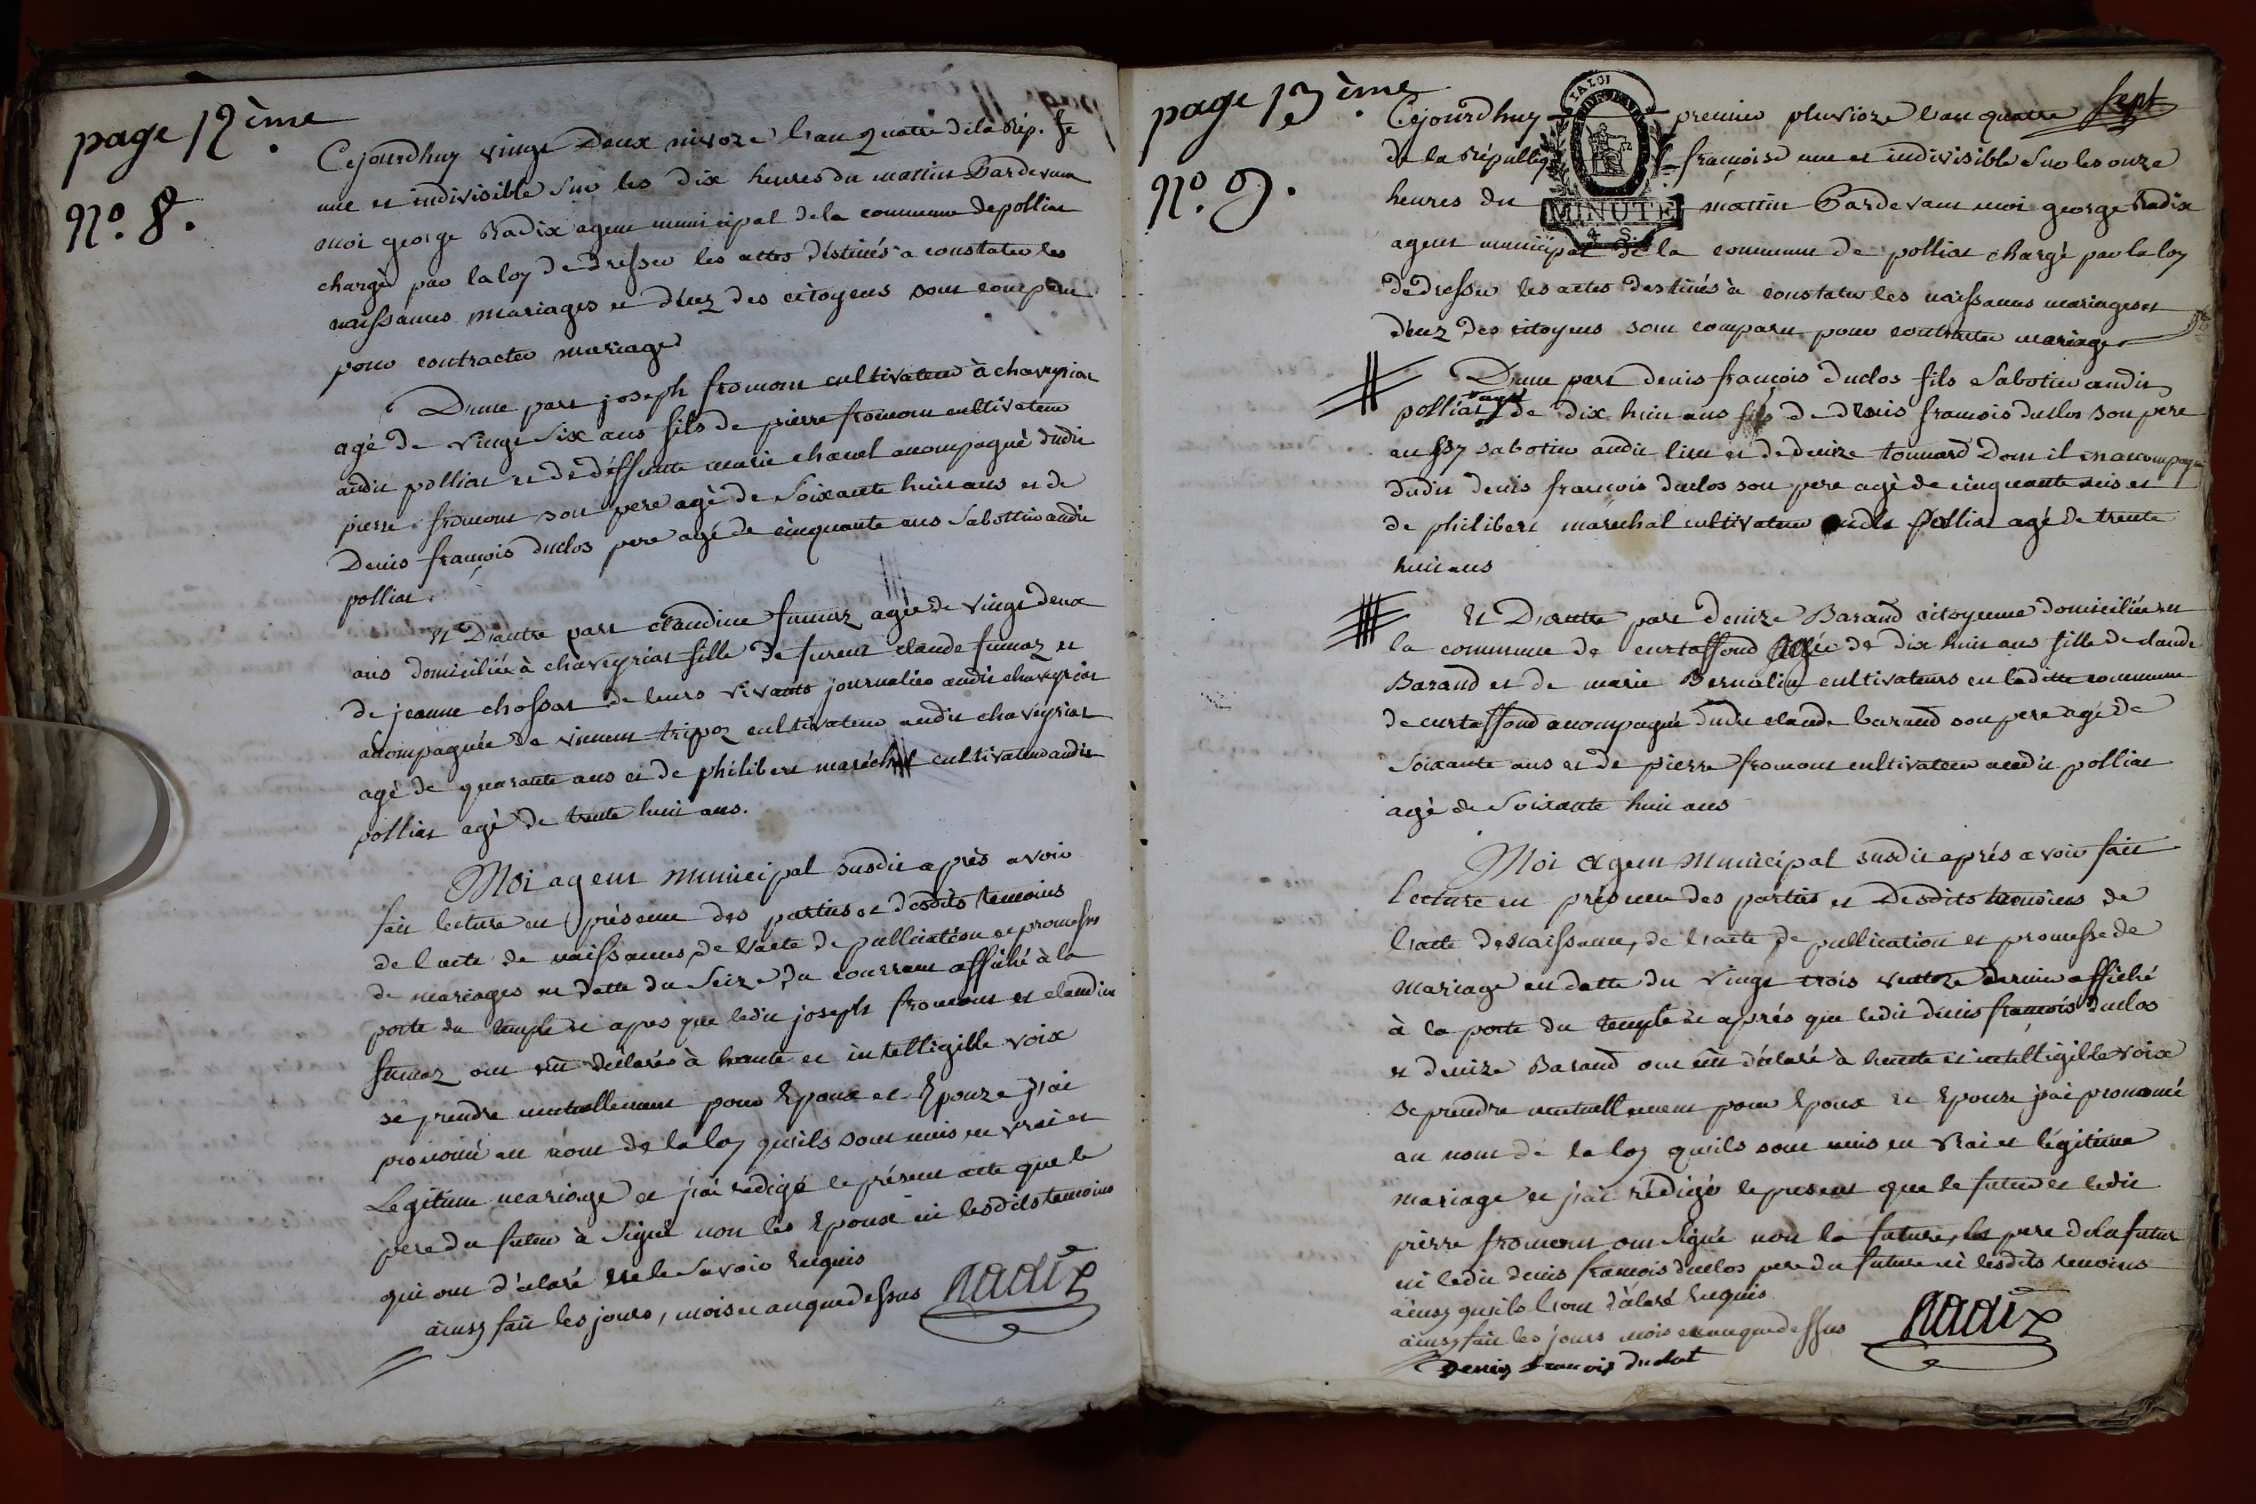 page 12ème
N°. 8.
Cejourd huy vingt Deux nivoze l'an quatre de la Rép. fe
une et indivisible Sur les dix heures du mattin Pardevant
moi george Radix agent municipal de la commune de polliat
chargé par la loy de dresser les actes déstinés a constater les
naissances mariages et décez des citoyens sont comparu
pour contracter mariage
D'une part joseph fromont cultivateur à chaveyriat
agé de vingt six ans fils de pierre fromont cultivateur
audit polliat et de déffunte marie chanel acompagné dudit
pierre fromont son pere agé de Soixante huit ans et de
Denis françois duclos pere agé de cinquante ans Sabottier audit
polliat.
Et D'autre part claudine fumaz agée de vingt deux
ans domiciliée à chaveyriat fille de furent claude fumaz et
de jeanne chossat de leurs vivants journalier audit chaveyriat
acompagnée de vincent tripoz cultivateur audit chaveyriat
agé de quarante ans et de philibert maréchal cultivateur audit
polliat agé de trente huit ans.
Moi agent municipal susdit après avoir
fait lecture en présence des parties et desdits temoins
de l'acte de naissances, de l'acte de publication et promesses
de mariages en datte du Seize du courrant affiché à la
porte du temple et apres que ledit joseph fromont et claudine
fumaz ont eût déclarés à haute et intelligible voix
se prendre mutuellement pour Epoux et Epouze j'ai
prononcé au nom de la loy qu'ils sont unis en vrai et
Legitime mariage et j'ai rédigé le présent acte que le
pere du futur à Signé non les Epoux ni lesdits temoins
qui ont d'claré ne le Savoir Enquis
ainsy fait les jours, mois et an que dessus Radix
page 13ème
N°. 9.
Sept
LA LOI
MINUTE
Cejourd huy premier pluvioze l'an quatre
de la Républiq françoise une et indivisible Sur les onze
heures du mattin Pardevant moi george Radix
agent municipal de la commune de polliat chargé par la loy
de dresser les actes destinés à constater les naissances mariages et
décez des citoyens sont comparu pour contracter mariage
D'une part denis françois duclos fils Sabotier audit
polliat agé de dix huit ans fils de denis francois duclos son pere
aussy sabotier audit lieu et de denize tonnard Dont il en acompagné
dudit denis francois duclos son pere agé de cinquante ans et
de philibert maréchal cultivateur audit polliat agé de trente
huit ans
Et D'autre part denize Barand citoyenne domiciliée en
la commune de curtaffond agée de dix huit ans fille de claude
Barand et de marie Bernalin cultivateurs en ladite commune
de curtaffond acompagné dudit claude barand son pere agé de
Soixante ans et de pierre fromont cultivateur audit polliat
agé de Soixante huit ans
Moi agent Municipal susdit après avoir fait
lecture en présence des parties et Desdits temoins de
l'acte de naissance, de l'acte de publication et promesse de
mariage en datte du vingt trois dernier affiché
à la porte du temple et aprés que ledit denis françois duclos
et denize Barand ont eût d'claré à haute et intelligible voix
se prendre mutuellement pour Epoux et Epouze j'ai prononcé
au nom de la loy qu'ils sont unis en Vrai et légitime
mariage et j'ai rédigé le present que le futur et ledit
pierre fromont ont Signé non la future, le pere de la future
ni ledit denis francois duclos pere du future ni lesdits temoins
ainsy qu'ils l'ont d'claré Enquis
ainsy fait les jours mois et an que dessus Radix
Denis francois duclot